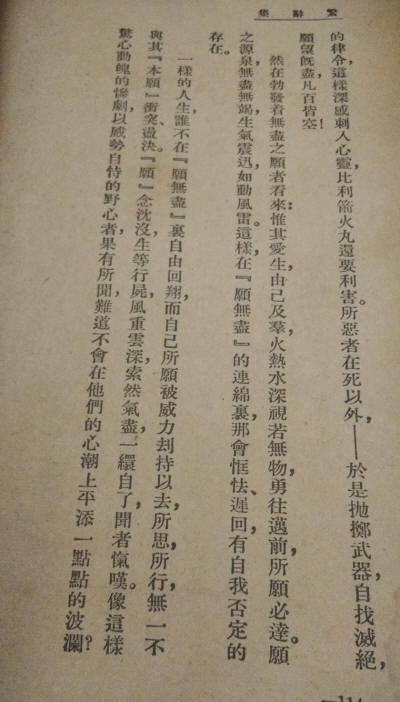 繁辭集
的律令，這樣深感刺人心靈，比利箭火丸還要利害。所惡者在死以外，——於是拋擲武器，自找滅絕，
願望旣盡，凡百皆空！
然在勃發着無盡之願者看來：惟其愛生，由己及羣，火熱水深，視若無物，勇往邁前，所願必達。願
之源泉，無盡無竭，生氣震迅，如動風雷。這樣，在『願無盡』的連綿裏，那會恇怯、遲回，有自我否定的
存在。
一樣的人生，誰不在『願無盡』裏自由回翔，而自己所願被威力刦持以去，所思，所行，無一不
與其『本願』衝突、盪決。『願』念沈沒，生等行屍，風重雲深，索然氣盡，一繯自了，聞者愾嘆。像這樣
驚心動魄的慘劇，以威勢自恃的野心者果有所聞，難道不會在他們的心潮上平添一點點的波瀾？
—114